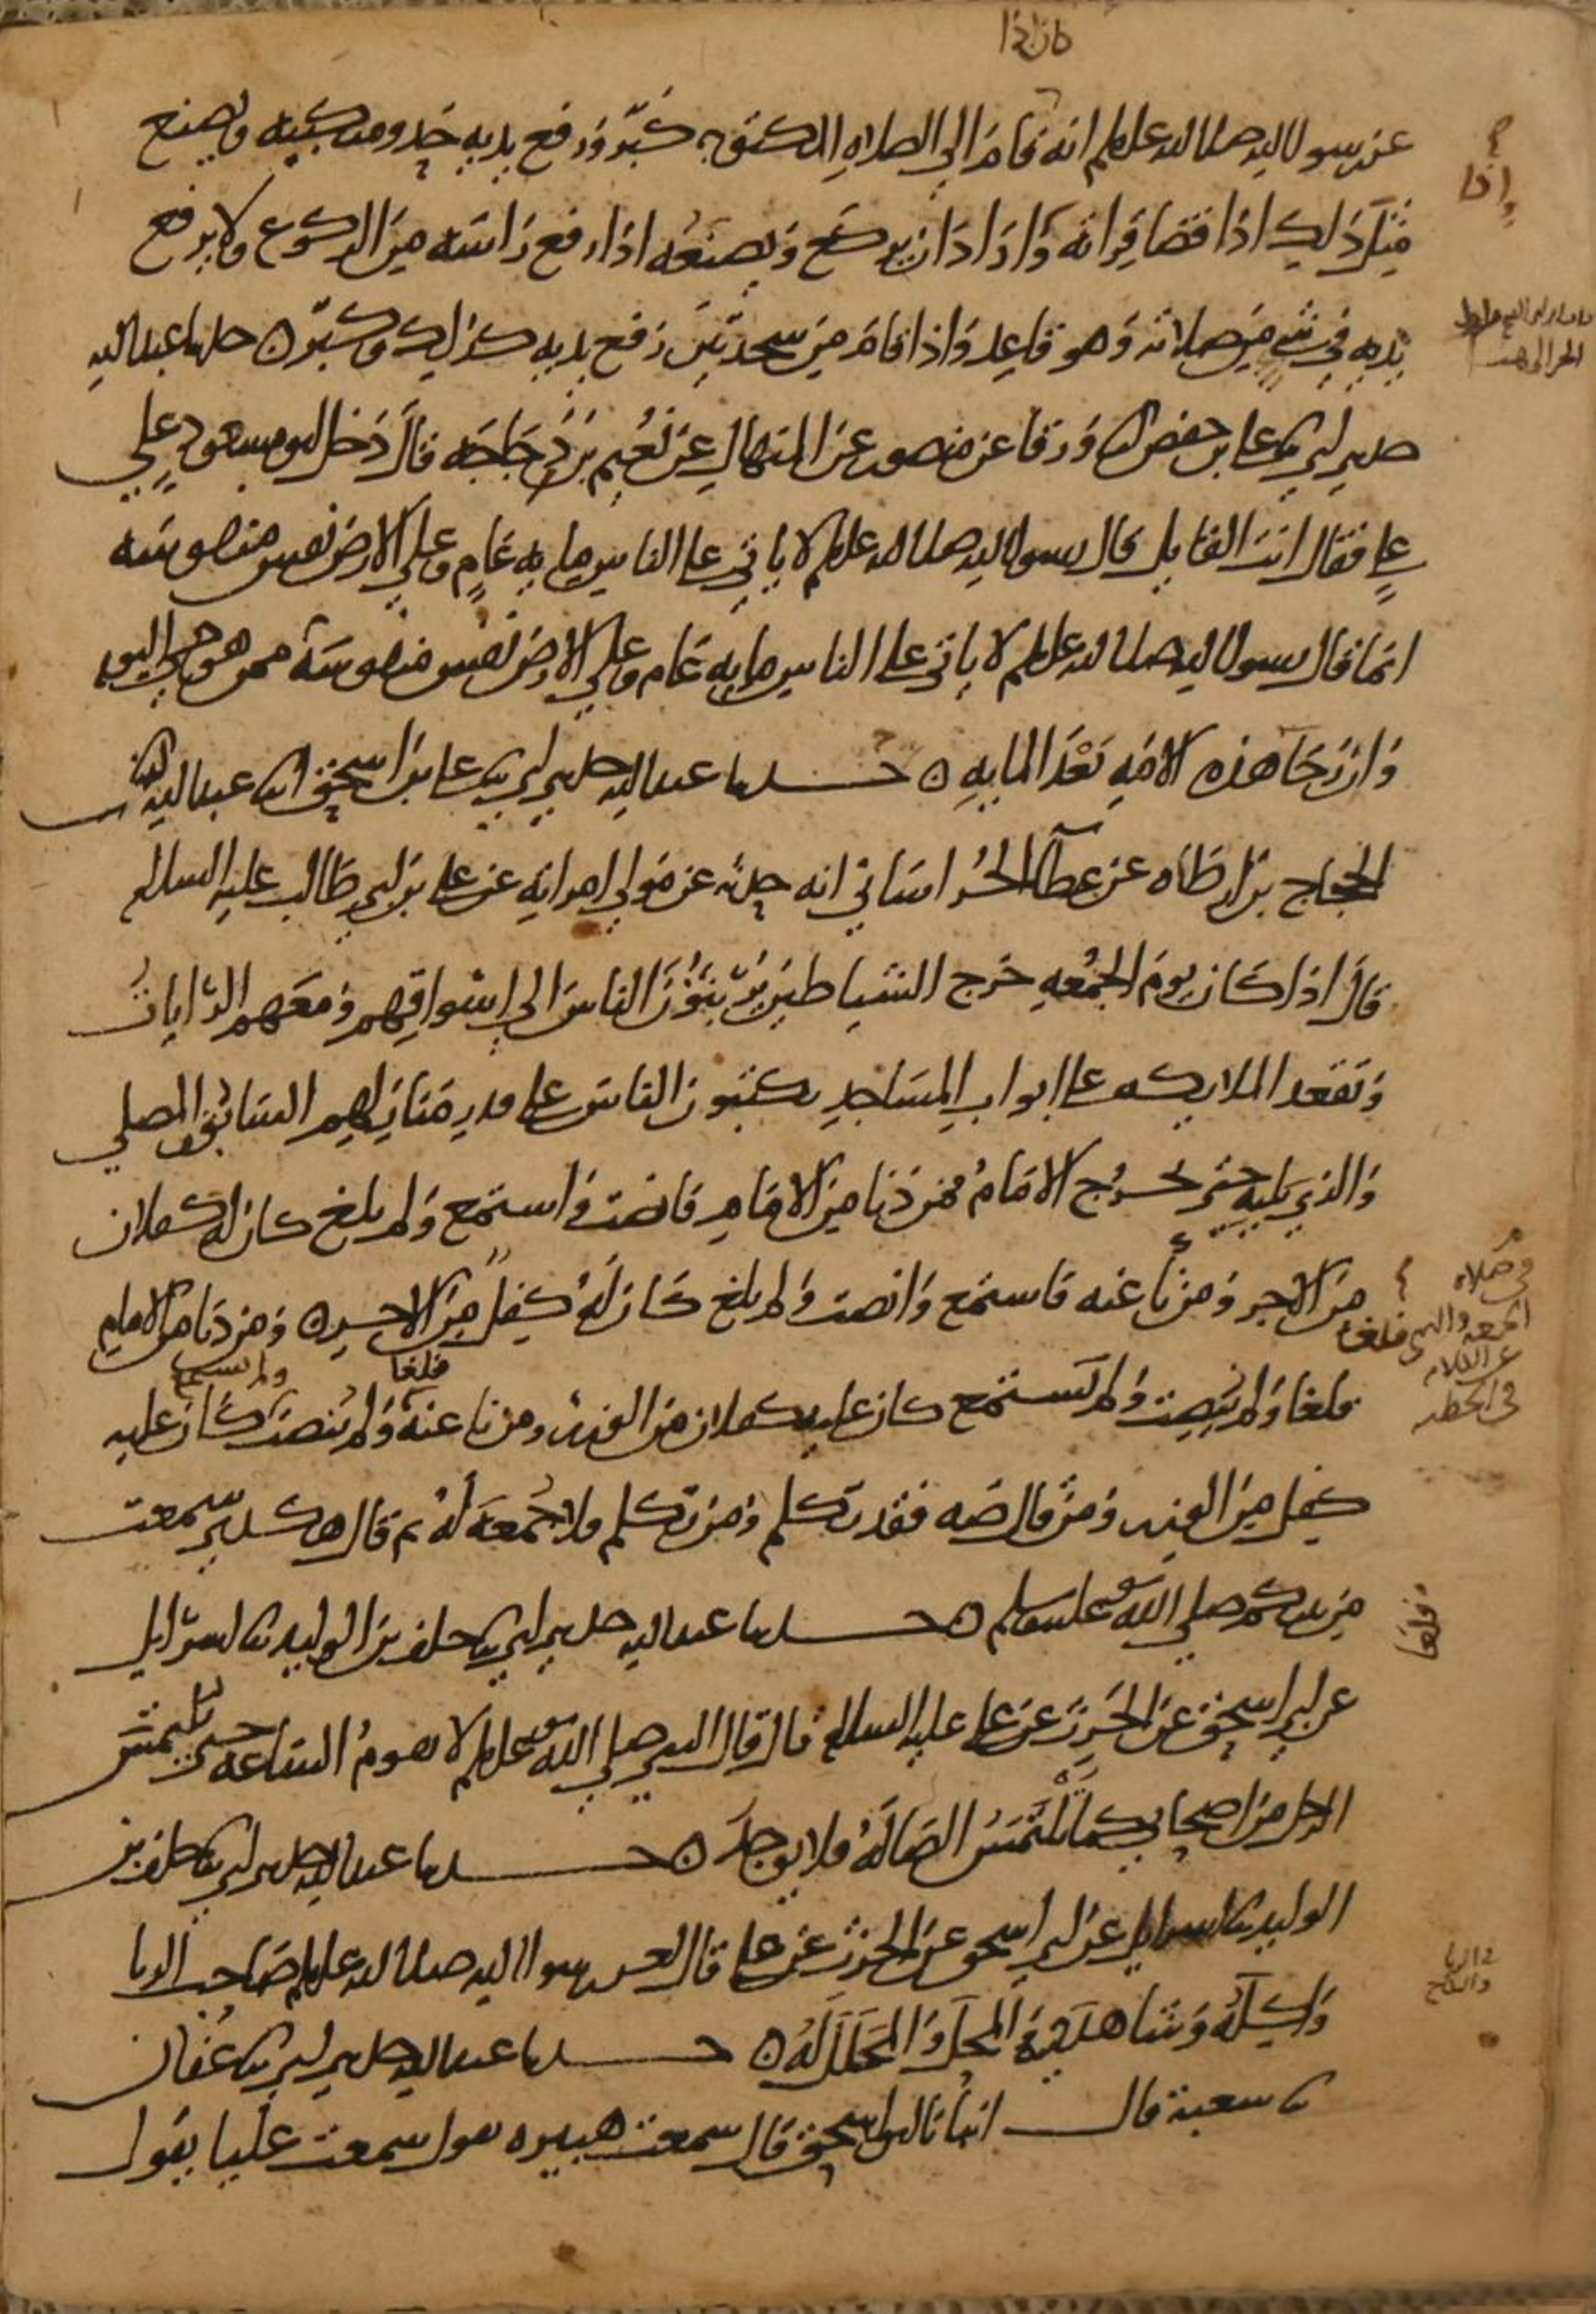 كان اذا
عن رسول الله صلى الله عليه وسلم انه قام الى الصلاه المكتوبه كبّر ورفع يديه حذو منكبيه ويصنع
واذا
مثل ذلك اذا قضا قراته وارادان يركع ويصنعه اذا رفع راسه من الركوع ولا يرفع
يديه في شي من صلاته وهو قاعد واذا قام من سجدتين رفع يديه كذلك وكبّر ه حدثنا عبد الله
حدثني ابي ثنا علي بن حفص انا ورقا عن منصور عن المنهال عن نعيم بن دجاجه قال دخل ابو مسعود علي
علي فقال انت القايل قال رسول الله صلى الله عليه وسلم لا ياتي على الناس مايه عام وعلي الارض نفس منفوسه
انما قال رسول الله صلى الله عليه وسلم لا ياتي على الناس مايه عام وعلي الارض نفس منفوسة ممن هو حي اليوم
وان رخا هذه الامه بعد المايه ه حدثنا عبد الله حدثني ابي ثنا علي بن اسحق انا عبد الله انا
الحجاج بن ارطاه عن عطا الخراساني انه حدثه عن مولي امراته عن علي بن ابي طالب عليه السلام
قال اذا كان يوم الجمعه خرج الشياطين يربثون الناس الي اسواقهم ومعهم الرايات
وتقعد الملايكه على ابواب المساجد يكتبون الناس على قدر منازلهم السابق والمصلي
والذي يليه حتى يخرج الامام فمن دنا من الامام فانصت واستمع ولم يلغ كان له كفلان
من الاجر ومن نا عنه فاستمع وانصت ولم يلغ كان له كفل من الاجر ه ومن دنا من الامام
في صلاه
الجمعه والنهي
عن الكلام
في الخطبه
فلغا ولم ينصت ولم يستمع كان عليه كفلان من الوزر ومن نا عنه فلغا ولم ينصت ولم يستمع كان عليه
كفل من الوزر ومن قال صه فقد تكلم ومن تكلم فلا جمعه له ثم قال هكذى سمعت
من نبيكم صلي الله عليه وسلم ه حدثنا عبد الله حدثني ابي ثنا خلف بن الوليد ثنا اسرايل
فلغا
عن ابي اسحق عن الحرث عن علي عليه السلام قال قال النبي صلي الله عليه وسلم لا تقوم الساعه حتى يلتمس
الرجل من اصحابي كما تلتمس الضاله فلا يوجد ه حدثنا عبد الله حدثني ابي ثنا خلف بن
الوليد ثنا اسرايل عن ابي اسحق عن الحرث عن علي قال لعن رسول الله صلى الله عليه وسلم صاحب الربا
واكله وشاهديه والمحل والمحلل له ه حدثنا عبد الله حدثني ابي ثنا عفان
ثنا شعبة قال انبانا ابو اسحق قال سمعت هبيره يقول سمعت عليا يقول